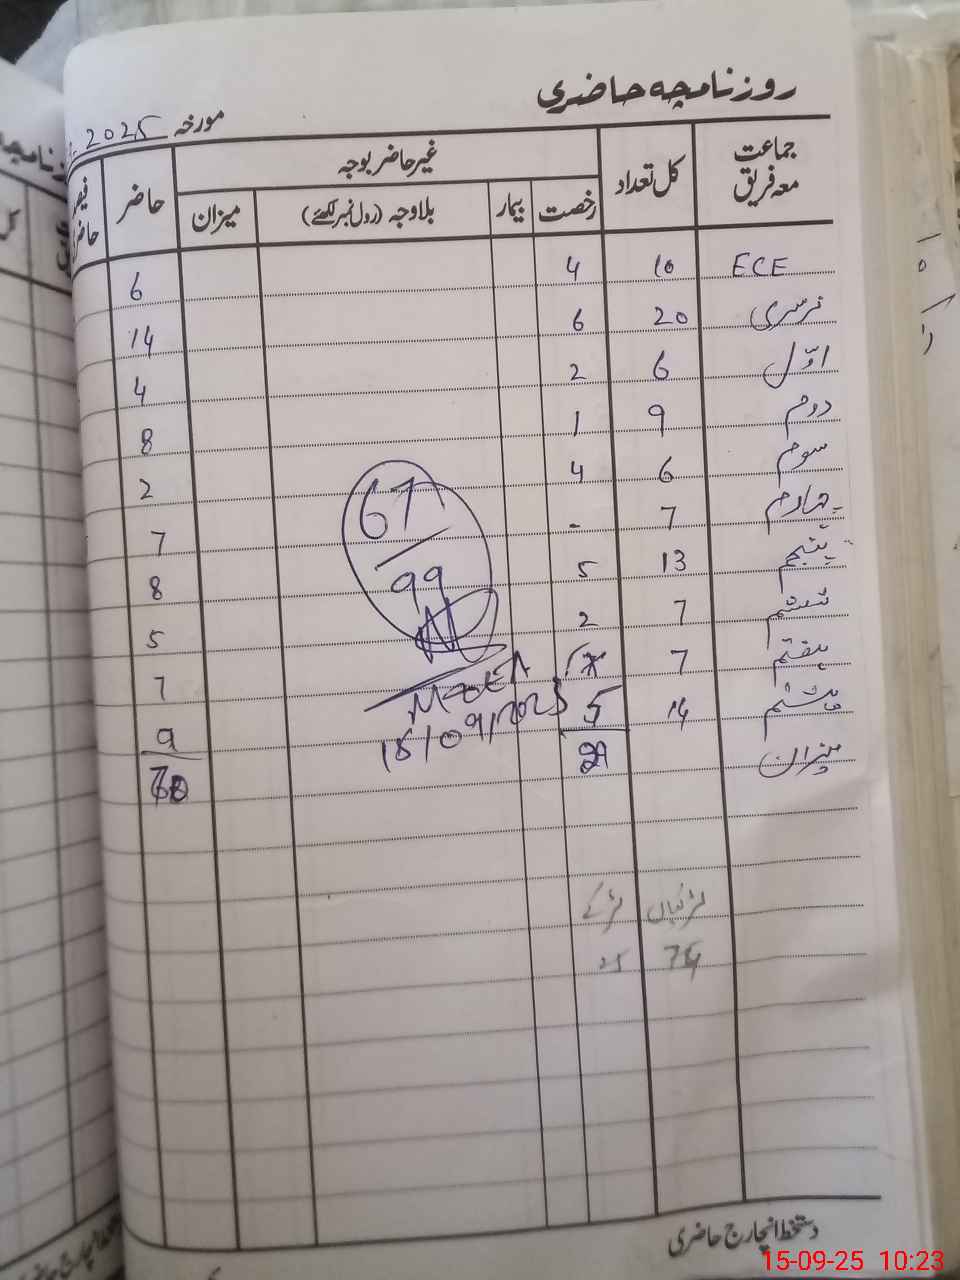 روزنامچہ حاضری
مورخہ 2025
جماعت معہ فریق کل تعداد غیر حاضر بوجہ حاضر
رخصت بیمار بلاوجہ (رول نمبر لکھئے) میزان
ECE 10 4 6
نرسری 20 6 14
اوّل 6 2 4
دوم 9 1 8
سوم 6 4 2
چہارم 7 - 7
پنجم 13 5 8
ششم 7 2 5
ہفتم 7 7
ہشتم 14 5 9
میزان
67
99
15/09/2025
لڑکیاں لڑکے
74 25
دستخط انچارج حاضری
15-09-25 10:23